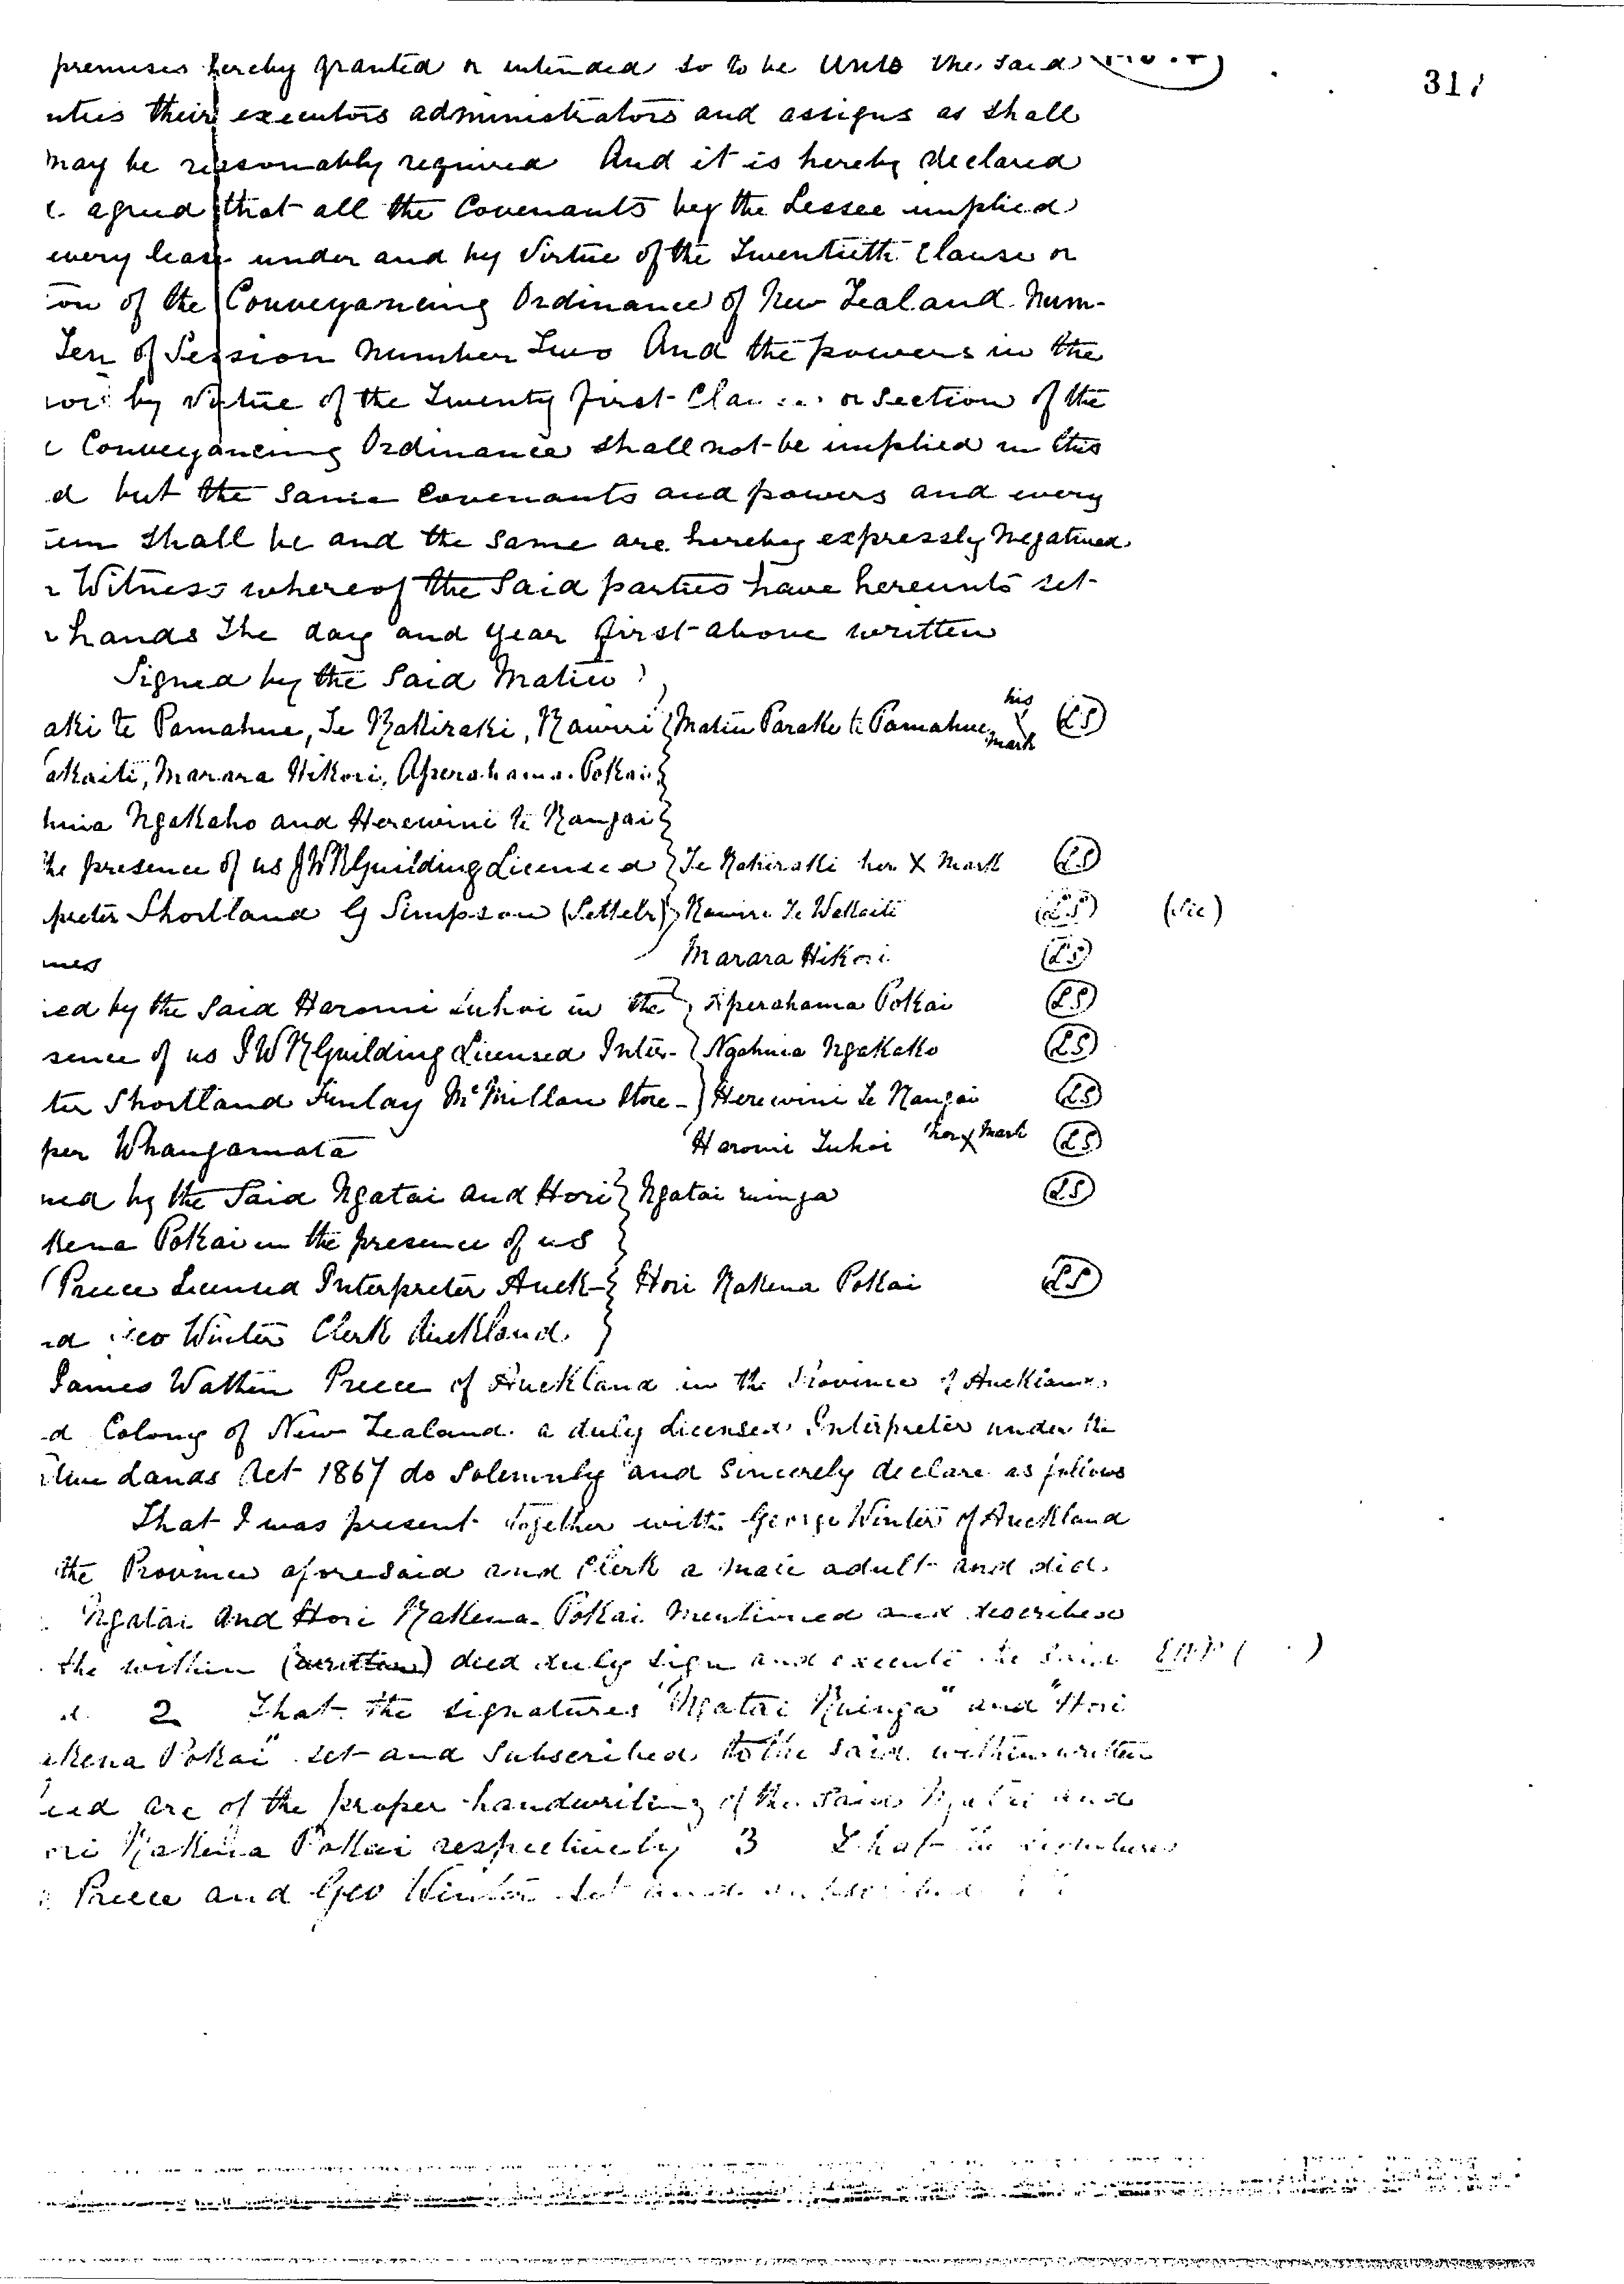 311
premises hereby granted or intended so to be Unto the said
uties their executors administrators and assigns as shall
may be reasonably required And it is hereby declared
agreed that all the Covenants by the Lessee implied
every lease under and by Virtue of the Twentieth Clause or
ion of the Conveyancing Ordinance of New Zealand Num-
Ten of Session Number Two And the powers in the
by Virtue of the Twenty first Clause or Section of the
Conveyancing Ordinance shall not be implied in this
d but the same Covenants and powers and every
em shall be and the same are hereby expressly Negatived
Witness whereof the Said parties have hereunto set
hands the day and year first above written
Signed by the Said Matiu
aki te Pamahue, Te Rakiraki, Rawiri } Matiu Parake te Pamahue his X mark (LS)
akaiti, Marara Hikori, Aperahama Pokai }
huia Ngakaho and Herewini te Rangai }
he presence of us JWR Guilding Licensed } Te Rakiraki her X Mark (LS)
preter Shortland G Simpson (Settler) } Rawiri Te Wakaiti (LS) (Sic)
mes Marara Hikori (LS)
ied by the Said Haromi Tuhoi in the } Aperahama Pokai (LS)
sence of us JWR Guilding Licensed Inter- } Ngahuia Ngakaho (LS)
ter Shortland Finlay McMillan Store- } Herewini Te Rangai (LS)
per Whangamata Haromi Tuhoi her X Mark (LS)
ned by the Said Ngatai and Hori } Ngatai ruinga (LS)
kena Pokai in the presence of us }
Preece Licensed Interpreter Auck- } Hori Rakena Pokai (LS)
d Geo Winter Clerk Auckland. }
James Wathen Preece of Auckland in the Province of Auckland
d Colony of New Zealand a duly Licensed Interpreter under the
tive Lands Act 1867 do Solemnly and Sincerely declare as follows
That I was present together with George Winter of Auckland
the Province aforesaid and Clerk a male adult and did
Ngatai And Hori Rakena Pokai Mentioned and described
the within (written) deed duly sign and execute the said
d. 2 That the signatures "Ngatai Ruinga" and "Hori
akena Pokai" set and Subscribed to the said within written
eed are of the proper handwriting of the said Ngatai and
ori Rakena Pokai respectively 3 That the signatures
Preece and Geo Winter set and subscribed